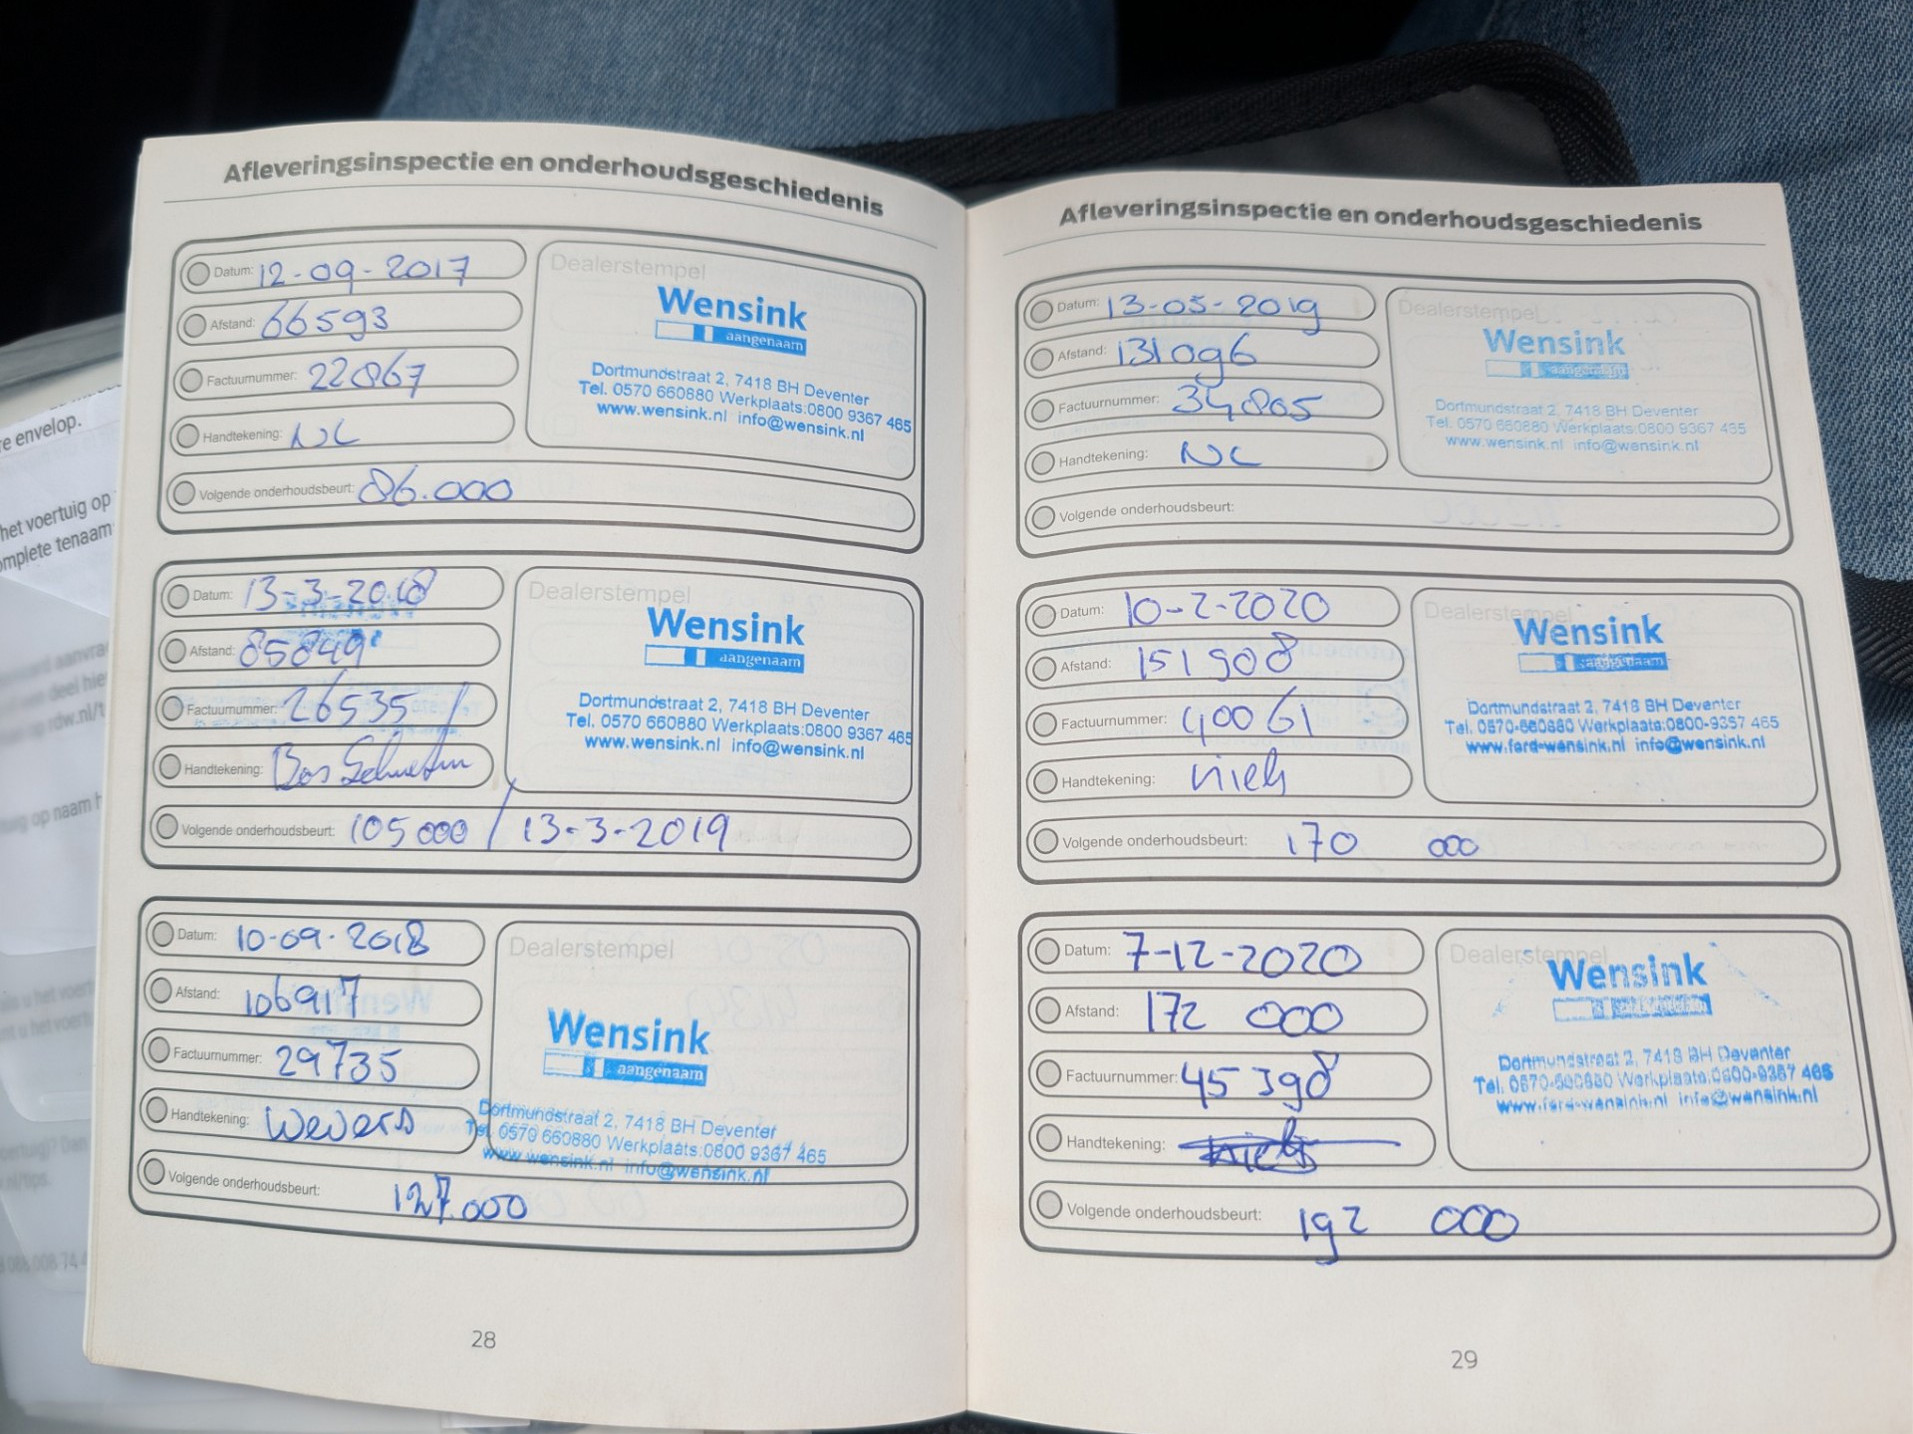 Afleveringsinspectie en onderhoudsgeschiedenis
Datum: 12-09-2017
Afstand: 66593
Factuurnummer: 22867
Handtekening: NC
Volgende onderhoudsbeurt: 86.000
Dealerstempel
Wensink
aangenaam
Dortmundstraat 2, 7418 BH Deventer
Tel. 0570 660880 Werkplaats:0800 9367 465
www.wensink.nl info@wensink.nl
Datum: 13-3-2018
Afstand: 85849
Factuurnummer: 26535
Handtekening: Bas
Volgende onderhoudsbeurt: 105000 / 13-3-2019
Dealerstempel
Wensink
aangenaam
Dortmundstraat 2, 7418 BH Deventer
Tel. 0570 660880 Werkplaats:0800 9367 465
www.wensink.nl info@wensink.nl
Datum: 10-09-2018
Afstand: 106917
Factuurnummer: 29735
Handtekening: Wevers
Volgende onderhoudsbeurt: 127.000
Dealerstempel
Wensink
aangenaam
Dortmundstraat 2, 7418 BH Deventer
Tel. 0570 660880 Werkplaats:0800 9367 465
www.wensink.nl info@wensink.nl
28
Afleveringsinspectie en onderhoudsgeschiedenis
Datum: 13-05-2019
Afstand: 131096
Factuurnummer: 34805
Handtekening: NC
Volgende onderhoudsbeurt:
Dealerstempel
Wensink
aangenaam
Dortmundstraat 2, 7418 BH Deventer
Tel. 0570 660880 Werkplaats:0800 9367 465
www.wensink.nl info@wensink.nl
Datum: 10-2-2020
Afstand: 151908
Factuurnummer: 40061
Handtekening: niels
Volgende onderhoudsbeurt: 170 000
Dealerstempel
Wensink
aangenaam
Dortmundstraat 2, 7418 BH Deventer
Tel. 0570-660880 Werkplaats:0800-9367 465
www.ford-wensink.nl info@wensink.nl
Datum: 7-12-2020
Afstand: 172 000
Factuurnummer: 45398
Handtekening:
Volgende onderhoudsbeurt: 192 000
Dealerstempel
Wensink
Dortmundstraat 2, 7418 BH Deventer
Tel. 0570-660880 Werkplaats:0800-9367 465
www.ford-wensink.nl info@wensink.nl
29
re envelop.
het voertuig op